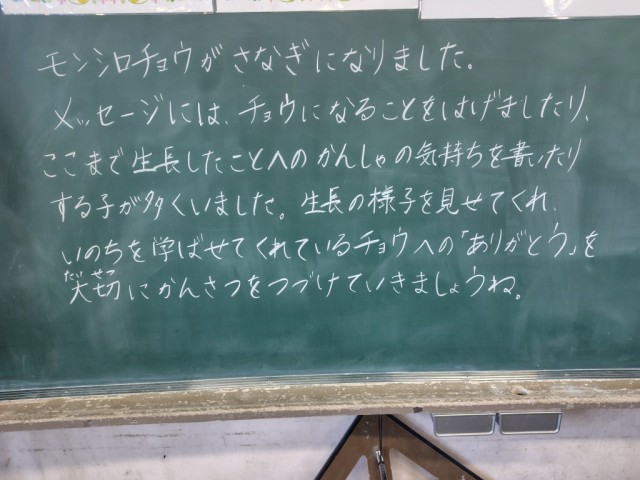 モンシロチョウがさなぎになりました。
メッセージには、チョウになることをはげましたり、
ここまで生長したことへのかんしゃの気持ちを書いたり
する子が多くいました。生長の様子を見せてくれ、
いのちを学ばせてくれているチョウへの「ありがとう」を
たいせつ
大切にかんさつをつづけていきましょうね。